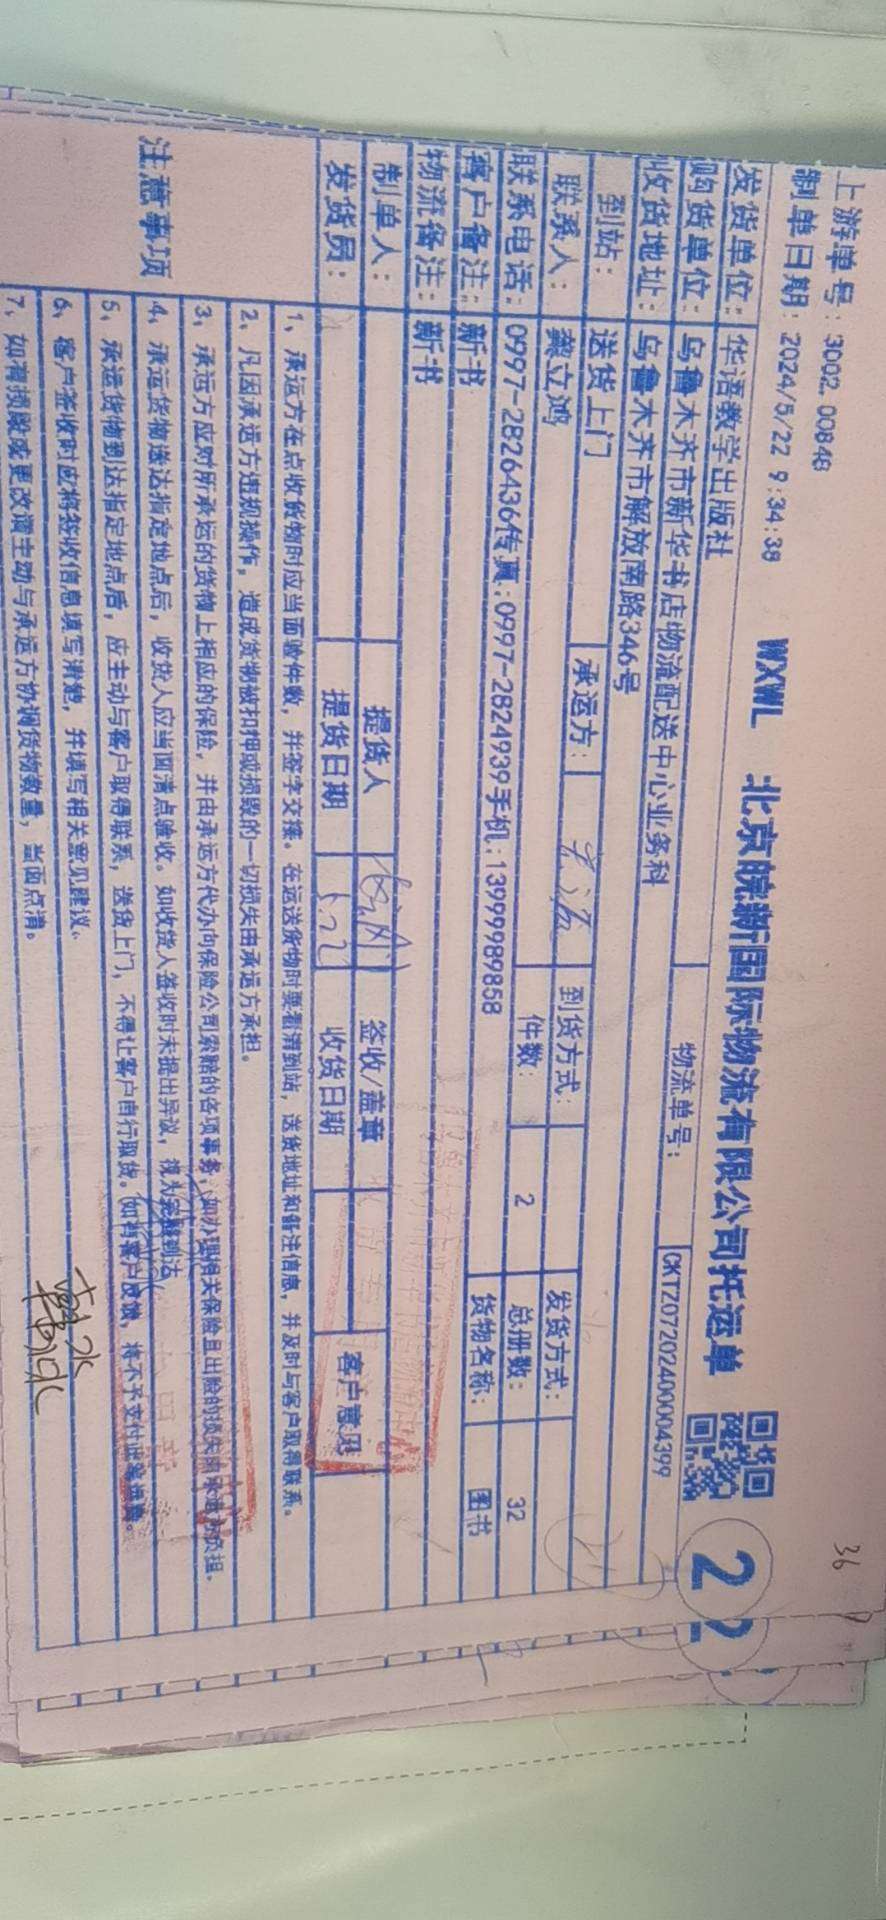 上游单号：3002 00848
36
制单日期：2024/5/22 9:34:38 WXWL 北京皖新国际物流有限公司托运单 2
发货单位：华语教学出版社 物流单号：CKTZ07202400004399
购货单位：乌鲁木齐市新华书店物流配送中心业务科
收货地址：乌鲁木齐市解放南路346号
到站：送货上门 承运方： 到货方式： 发货方式：
联系人：龚立鸿 件数：2 总册数：32
联系电话：0997-2826436传真:0997-2824939手机:13999989858 货物名称：图书
客户备注：新书
物流备注：新书
制单人： 提货人 签收/盖章 客户意见
发货员： 提货日期 5.22 收货日期
注意事项
1、承运方在点收货物时应当面验件数，并签字交接。在运送货物时要看清到站，送货地址和备注信息，并及时与客户取得联系。
2、凡因承运方违规操作，造成货物被扣押或损毁的一切损失由承运方承担。
3、承运方应对所承运的货物上相应的保险，并由承运方代办向保险公司索赔的各项事务，如办理相关保险且出险的损失由承运方负担。
4、承运货物送达指定地点后，收货人应当面清点验收。如收货人签收时未提出异议，视为完整到达
5、承运货物到达指定地点后，应主动与客户取得联系，送货上门，不得让客户自行取货。如有客户反馈，将不予支付正常运费。
6、客户签收时应将签收信息填写清楚，并填写相关意见建议、
7、如有损毁或更改请主动与承运方协调货物数量，当面点清。